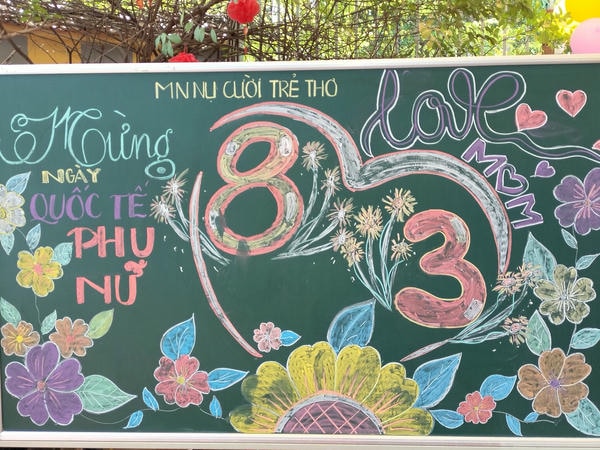 MN NỤ CƯỜI TRẺ THƠ
Mừng
NGÀY
QUỐC TẾ
PHỤ
NỮ
8
3
love
MOM